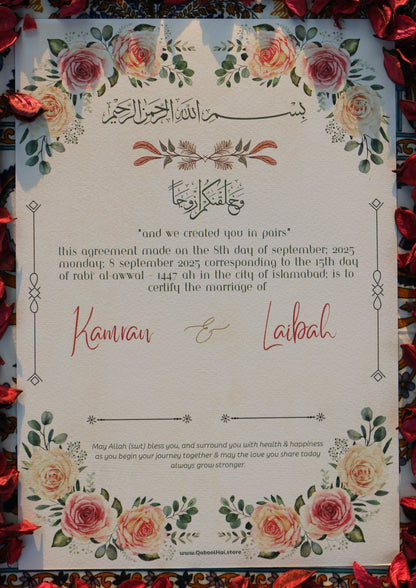 بسم الله الرحمن الرحيم
وخلقنكم ازوجا
"and we created you in pairs"
this agreement made on the 8th day of september; 2025
monday; 8 september 2025 corresponding to the 15th day
of rabi' al-awwal - 1447 ah in the city of islamabad; is to
certify the marriage of
Kamran & Laibah
May Allah (swt) bless you, and surround you with health & happiness
as you begin your journey together & may the love you share today
always grow stronger.
www.QaboolHai.store